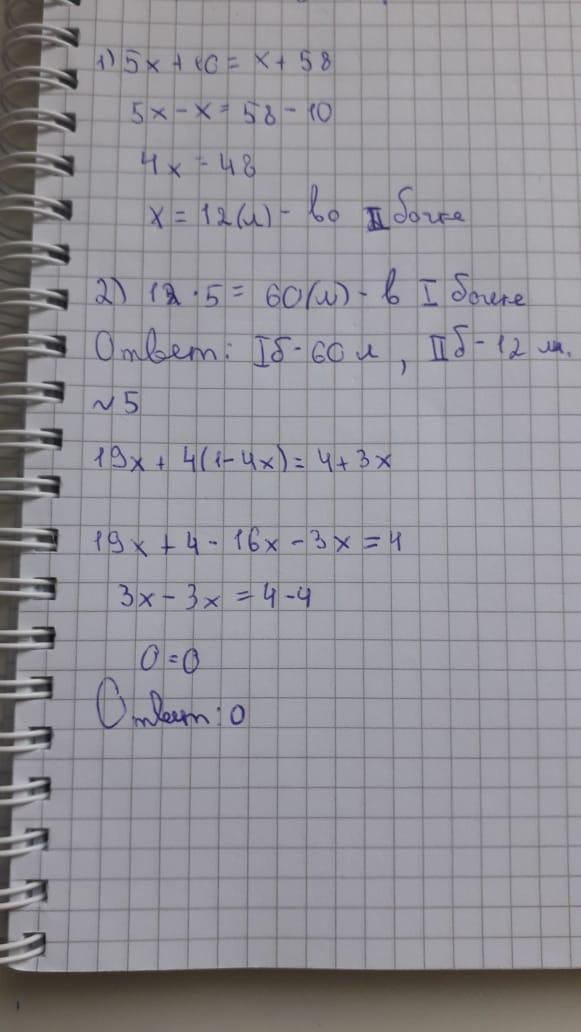 1) 5x + 10 = x + 58
5x - x = 58 - 10
4x = 48
x = 12(л) - во II бочке
2) 12 · 5 = 60(л) - в I бочке
Ответ: Iб - 60 л, IIб - 12 л.
№5
19x + 4(1-4x) = 4 + 3x
19x + 4 - 16x - 3x = 4
3x - 3x = 4-4
0 = 0
Ответ: 0